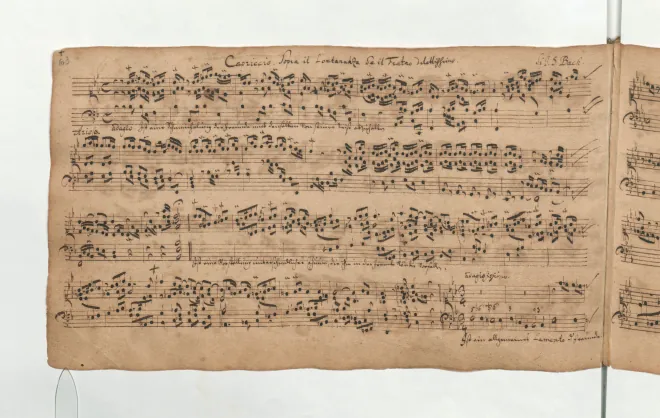 Capriccio. Sopra il Lontananza de il Fratro dilettissimo. di J. S. Bach
Arioso Adagio. Ist eine Schmeichelung der Freunde um denselben von seiner Reise abzuhalten.
Ist eine Vorstellung unterschiedlicher Casuum, die ihm in der Fremde könten vorfallen.
Adagiosissimo
Ist ein allgemeines Lamento der Freunde